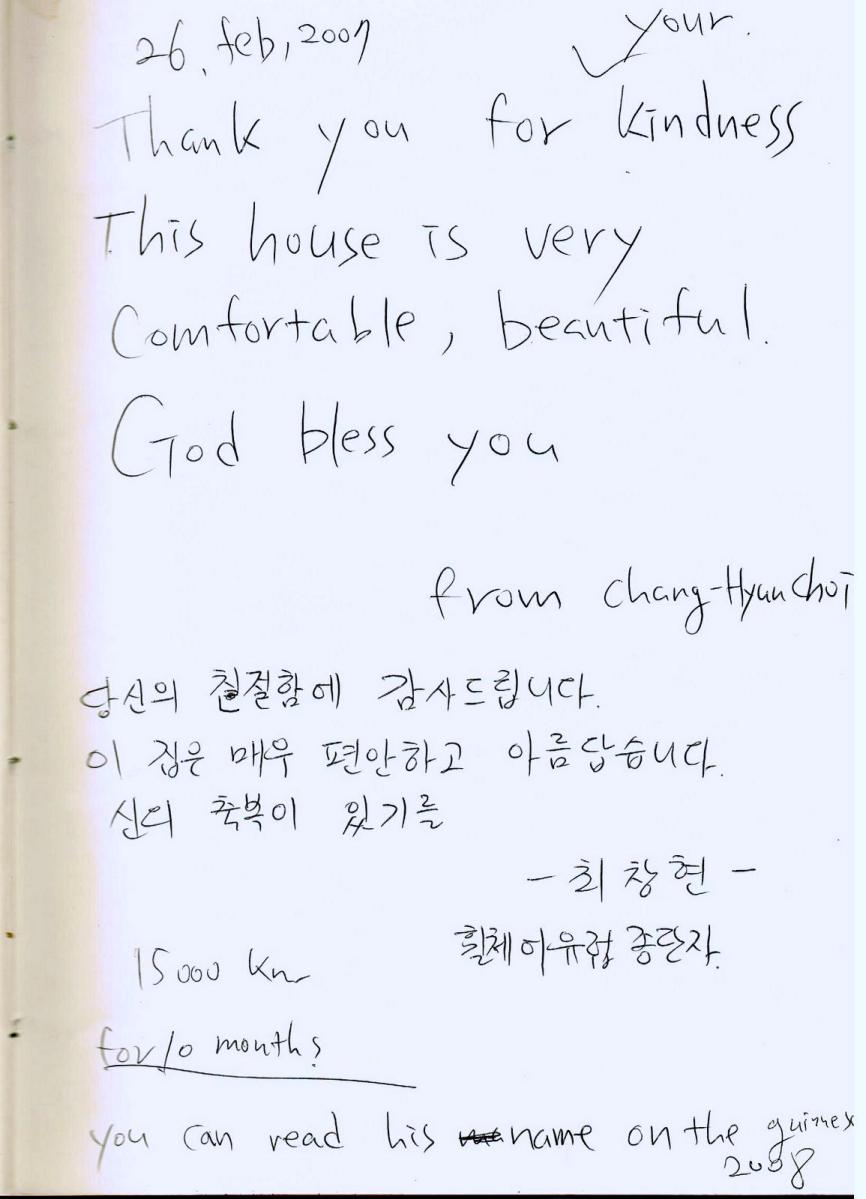 26, feb, 2007
your.
Thank you for kindness
This house is very
Comfortable, beautiful.
God bless you
from Chang-Hyun Choi
당신의 친절함에 감사드립니다.
이 집은 매우 편안하고 아름답습니다.
신의 축복이 있기를
- 최창현 -
휠체어유럽 종단자.
15000 Km
for 10 months
you can read his name on the guinnex
2008